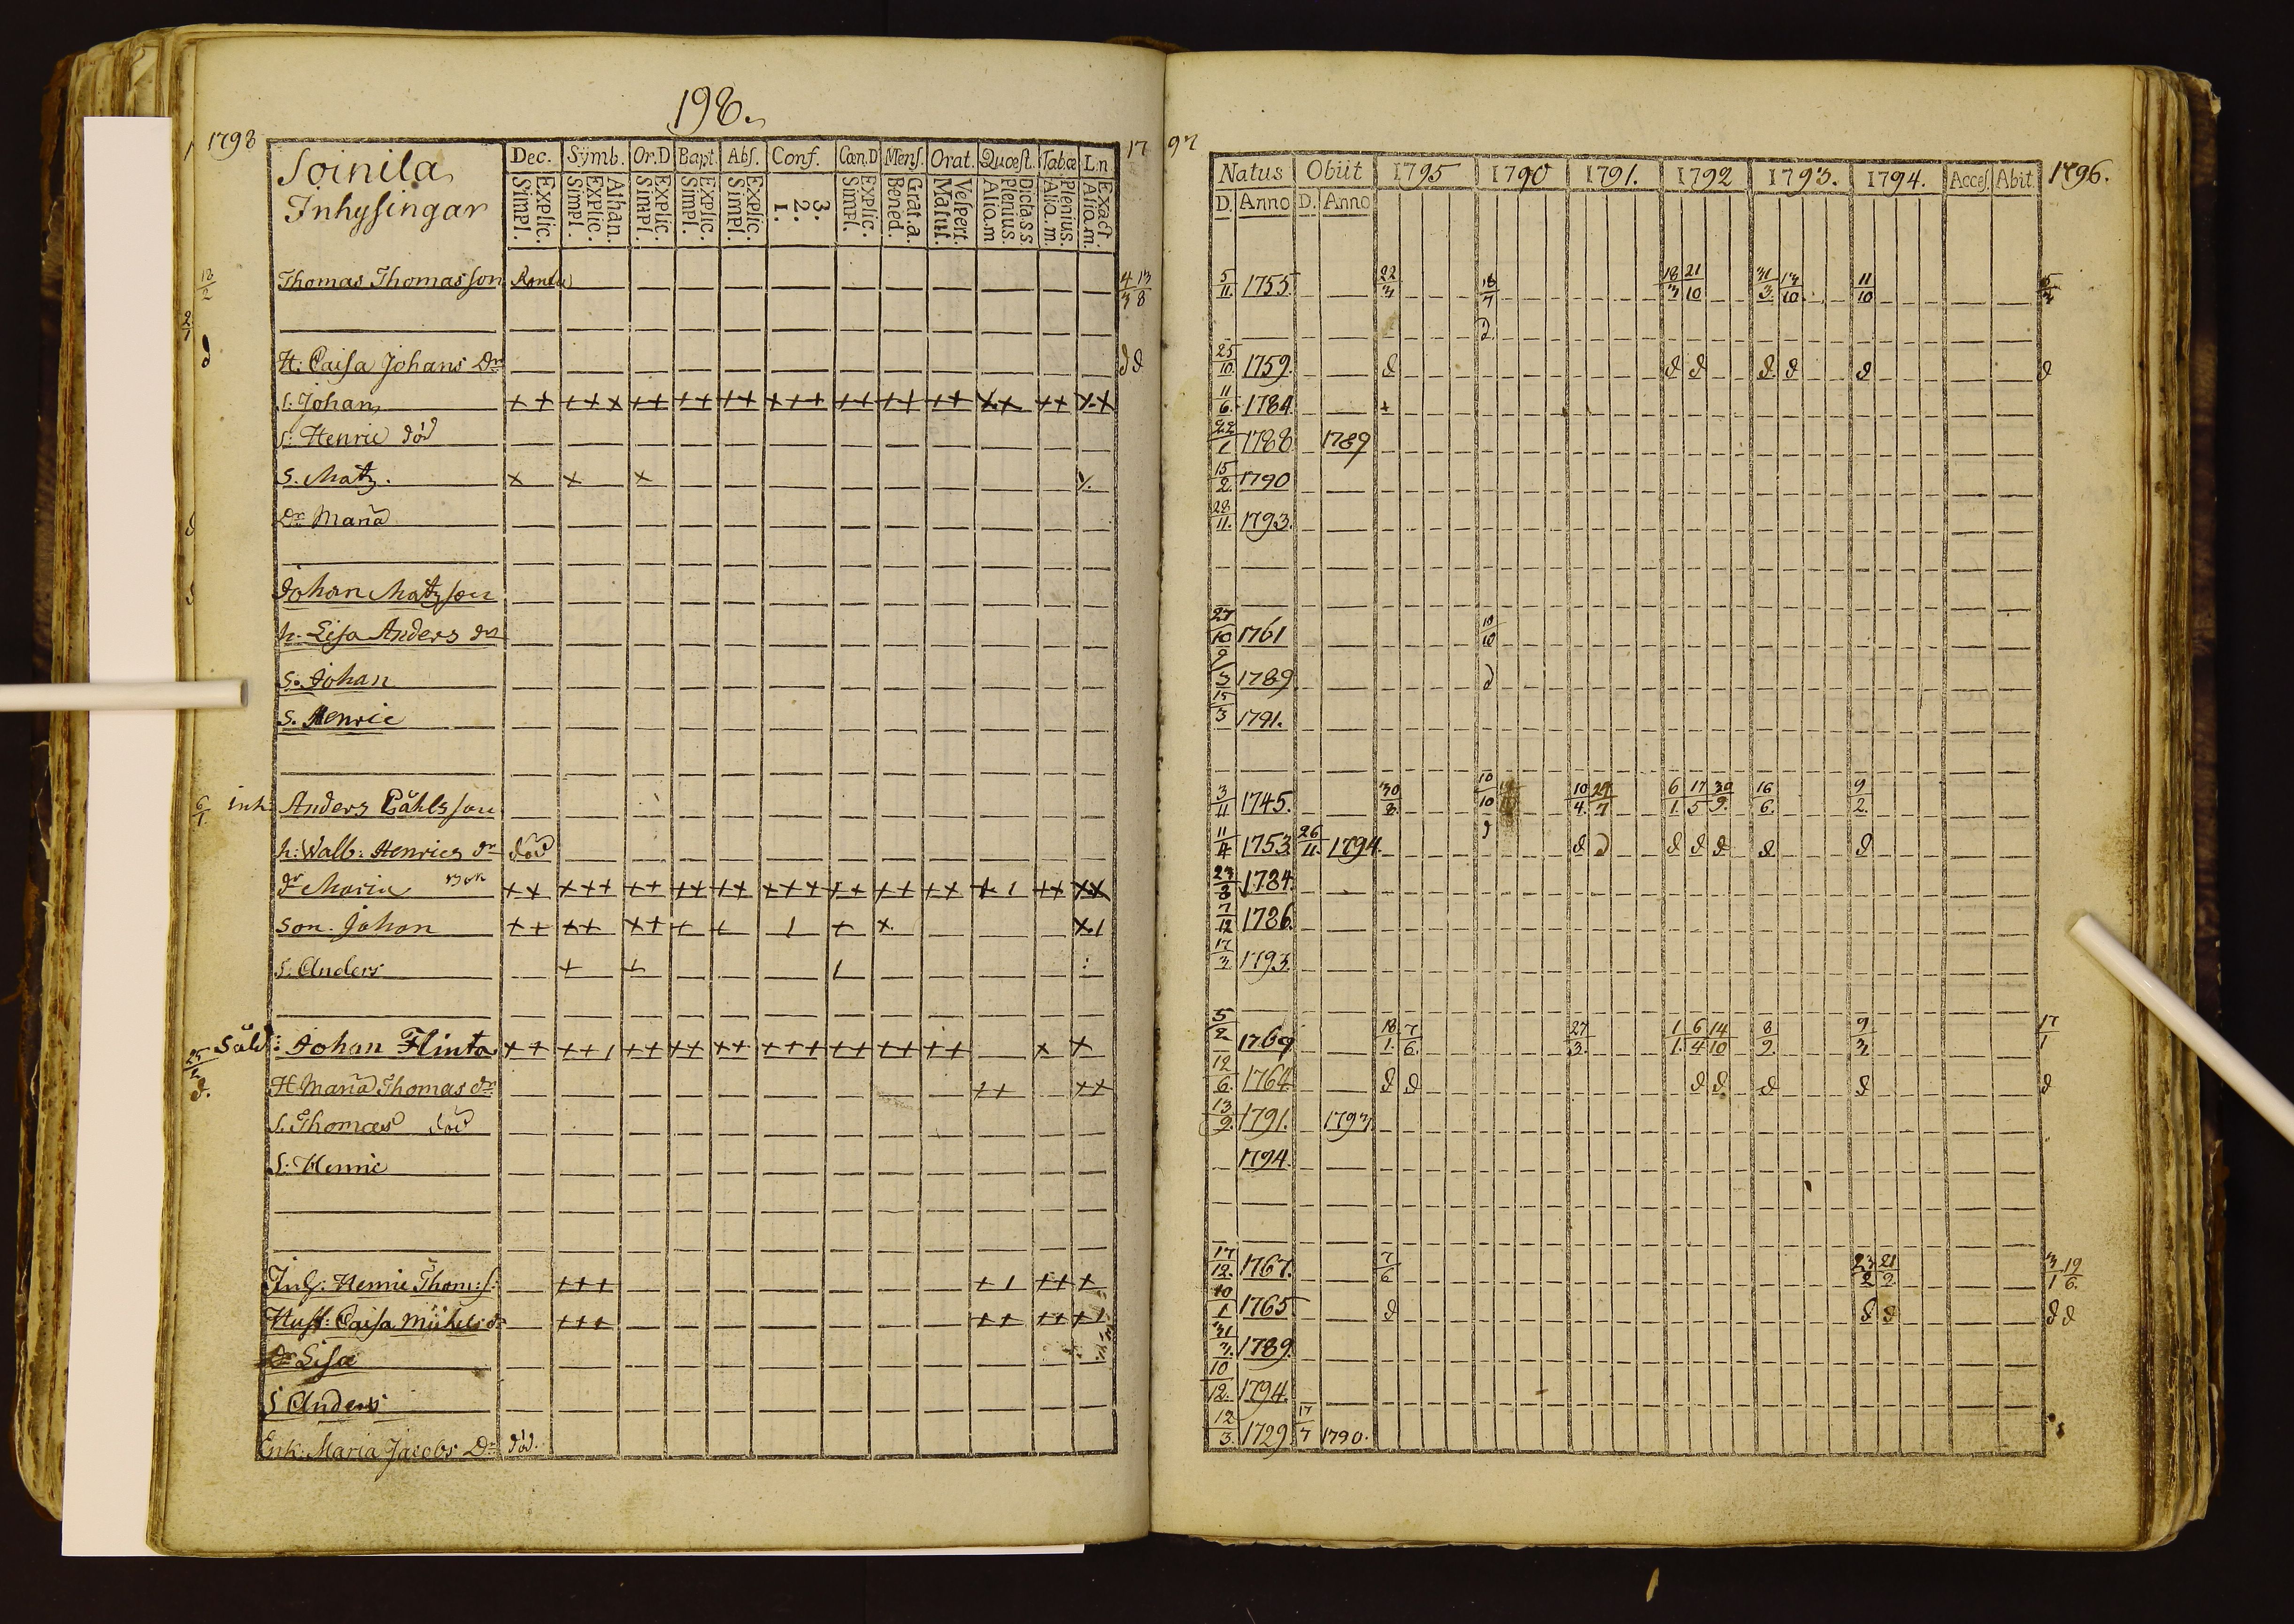 198.
1798
17 97
Soinila
Inhysingar
Dec. Symb. Or.D Bapt. Abs. Conf. Cœn.D Mens. Orat. Quœst. Tabœ L.n
Explic. Simpl. Athan. Explic. Simpl. Explic. Simpl. Explic. Simpl. Explic. Simpl. 3. 2. 1. Explic. Simpl. Grat.a. Bened. Vespert. Matut. Dicta.s.s. Plenius. Aliq.m Plenius. Aliq.m. Exact. Aliq.m.
Natus Obiit 1795 1790 1791. 1792 1793. 1794. Acces. Abit 1796.
D. Anno D. Anno
Thomas Thomasson 4/3 13/8 5/11 1755 22/3 18/7 18/3 21/10 31/3 13/10 11/10
d
H: Caisa Johans Dr d d 25/10 1759. d d d d d d d
S. Johan ++ +++ ++ ++ ++ +++ ++ ++ ++ ++ ++ ++ 11/6 1784 +
S: Henric död 22/1 1788 1789
S. Matz. + + + 15/2 1790
Dr Maria 28/11. 1793.
Johan Matzson
h. Lisa Anders dr 27/10 1761 10/10
S. Johan 1789 d
S. Henric 15/3 1791.
6/1 inh: Anders Påhlsson 3/11 1745. 30/8 10/10 10/4. 29/7 6/1. 17/5 30/9. 16/6. 9/2.
h: Walb: Henrics dr död 11/4 1753 26/11. 1794. d d d d d d d d
dr Maria ++ +++ ++ ++ ++ +++ ++ ++ ++ +1 ++ ++ 23/8 1784.
Son. Johan ++ ++ ++ + + 1 + + +1 7/12 1786.
S. Anders + + 1 17/3 1793.
25/2 Såld: Johan Flinta ++ ++1 ++ ++ ++ +++ ++ ++ ++ + + 5/2 1769 18/1. 7/6. 27/3. 1/1. 6/4 14/10 8/9. 9/3. 17/1
d. H Maria Thomas dr ++ ++ 12/6. 1764 d d d d d d d
S. Thomas död 13/9. 1791. 1793.
S. Henric 1794.
Inh: Henric Thom:s. +++ +1 ++ + 17/12. 1767. 7/6 23/2 21/9 3/1 19/6.
Hust: Caisa Michels dr +++ ++ ++ +1 10/1 1765 d d d d d
Dr Lisa 31/3. 1789.
S Anders 10/12. 1794.
Enk: Maria Jacobs Dr död. 12/3. 1729. 17/7 1790.